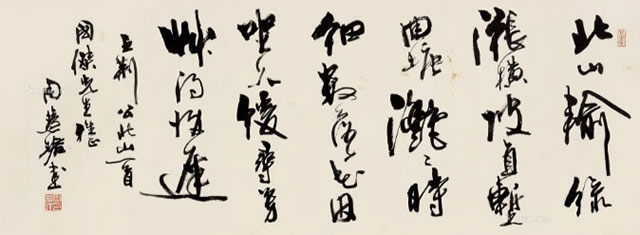 北山輸緑
漲橫陂直塹
回塘灩〻時
細數落花因
坐久緩尋芳
草得歸遲
王荆公北山一首
國傑先生雅正
周慧珺書